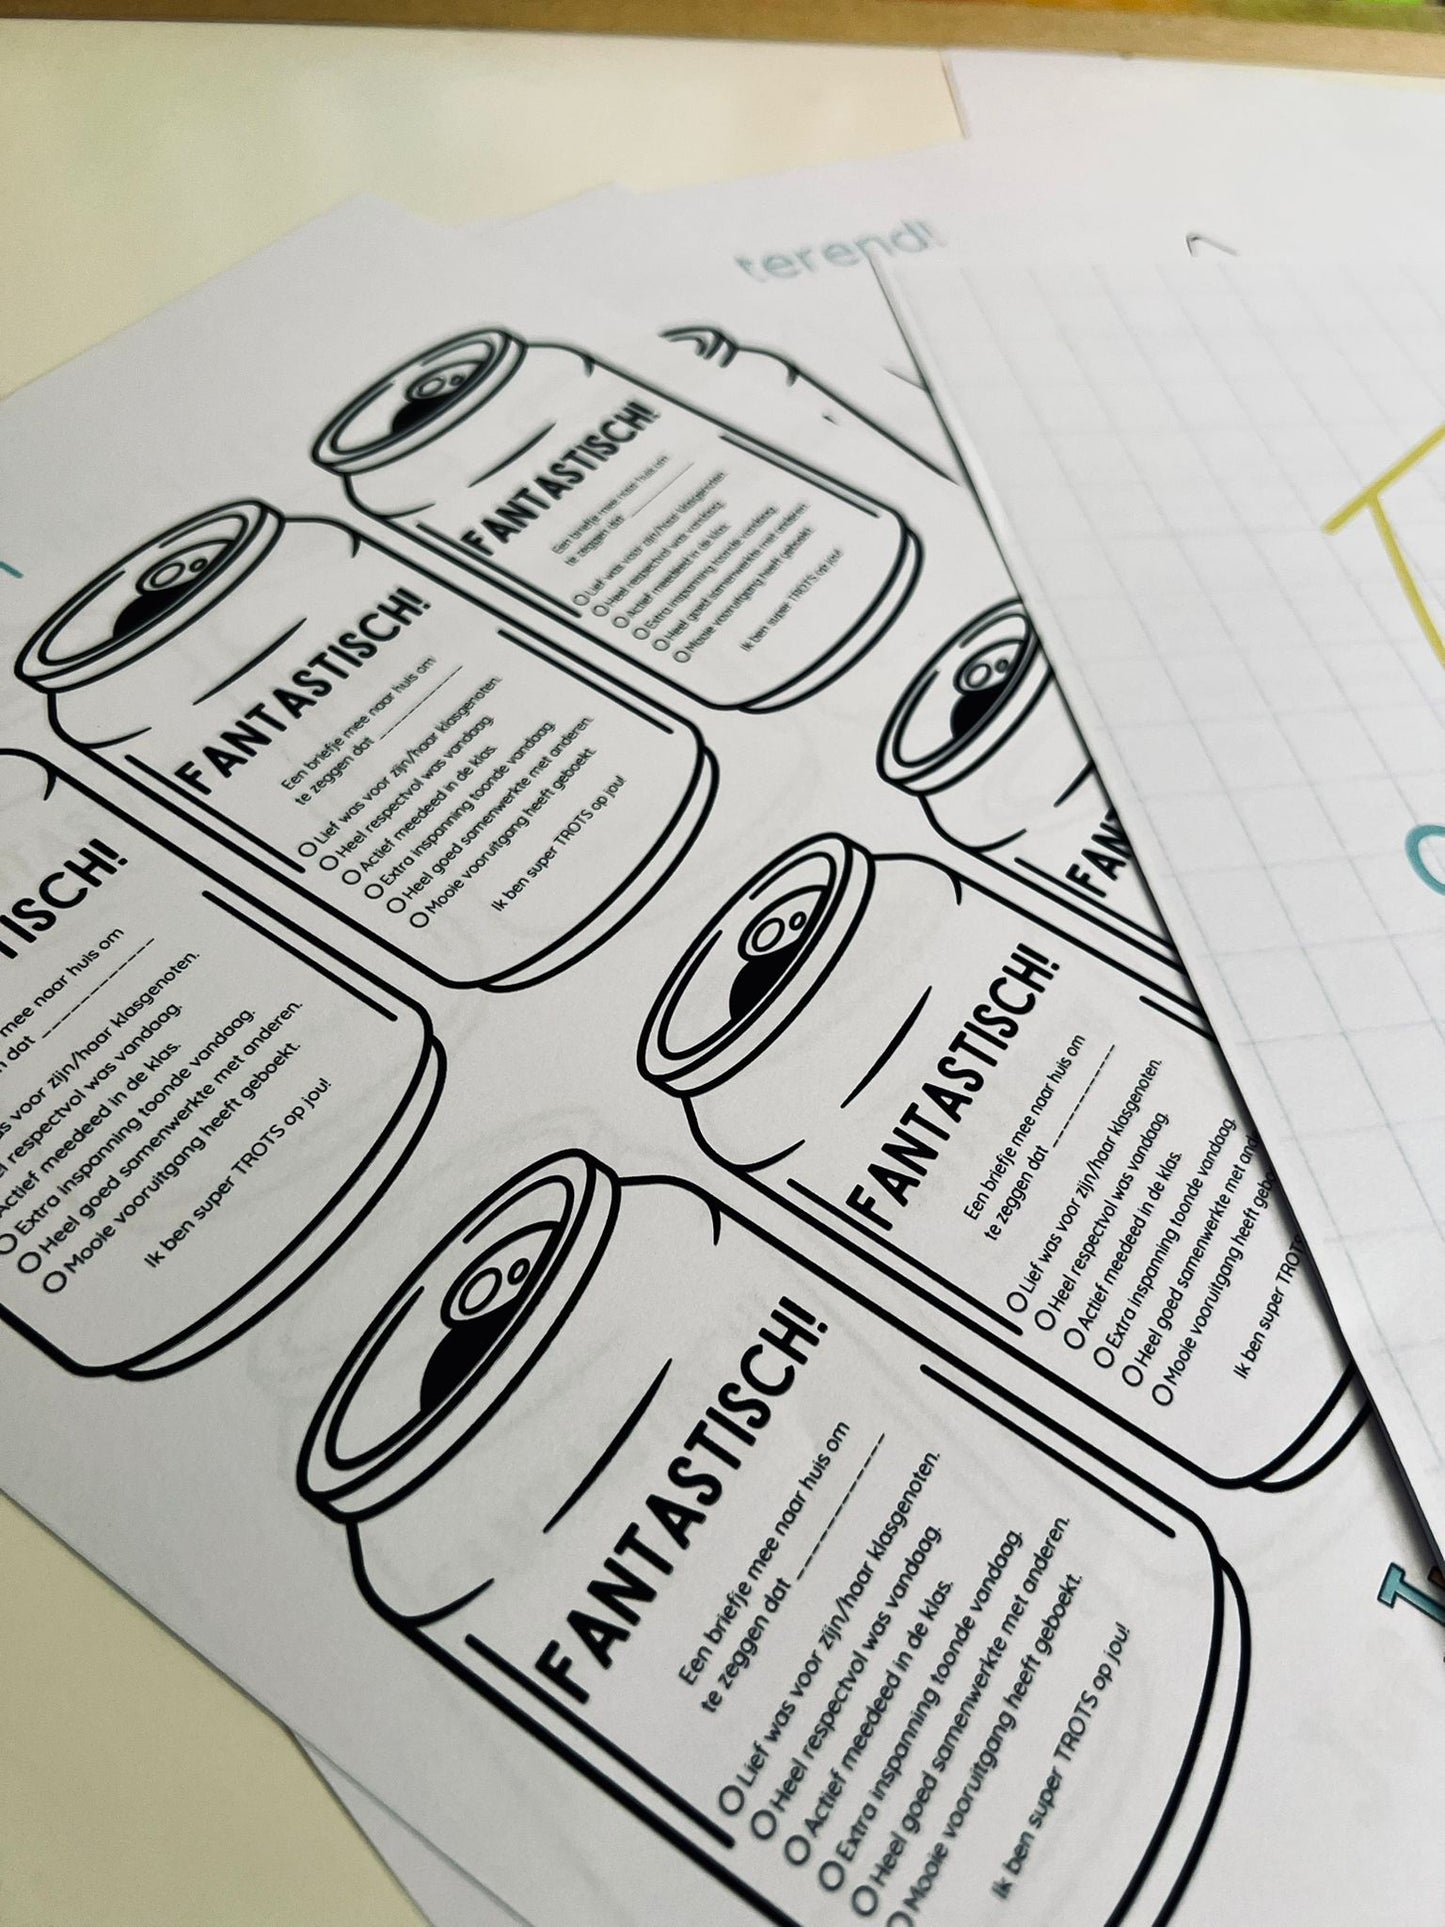 terend!
FANTASTISCH!
Een briefje mee naar huis om
te zeggen dat
Lief was voor zijn/haar klasgenoten.
Heel respectvol was vandaag.
Actief meedeed in de klas.
Extra inspanning toonde vandaag.
Heel goed samenwerkte met anderen.
Mooie vooruitgang heeft geboekt.
Ik ben super TROTS op jou!
FANTASTISCH!
Een briefje mee naar huis om
te zeggen dat
Lief was voor zijn/haar klasgenoten.
Heel respectvol was vandaag.
Actief meedeed in de klas.
Extra inspanning toonde vandaag.
Heel goed samenwerkte met anderen.
Mooie vooruitgang heeft geboekt.
Ik ben super TROTS op jou!
TISCH!
mee naar huis om
dat
voor zijn/haar klasgenoten.
respectvol was vandaag.
Actief meedeed in de klas.
Extra inspanning toonde vandaag.
Heel goed samenwerkte met anderen.
Mooie vooruitgang heeft geboekt.
Ik ben super TROTS op jou!
FAN
FANTASTISCH!
Een briefje mee naar huis om
te zeggen dat
Lief was voor zijn/haar klasgenoten.
Heel respectvol was vandaag.
Actief meedeed in de klas.
Extra inspanning toonde vandaag.
Heel goed samenwerkte met and
Mooie vooruitgang heeft gebo
Ik ben super TROTS
FANTASTISCH!
Een briefje mee naar huis om
te zeggen dat
Lief was voor zijn/haar klasgenoten.
Heel respectvol was vandaag.
Actief meedeed in de klas.
Extra inspanning toonde vandaag.
Heel goed samenwerkte met anderen.
Mooie vooruitgang heeft geboekt.
Ik ben super TROTS op jou!